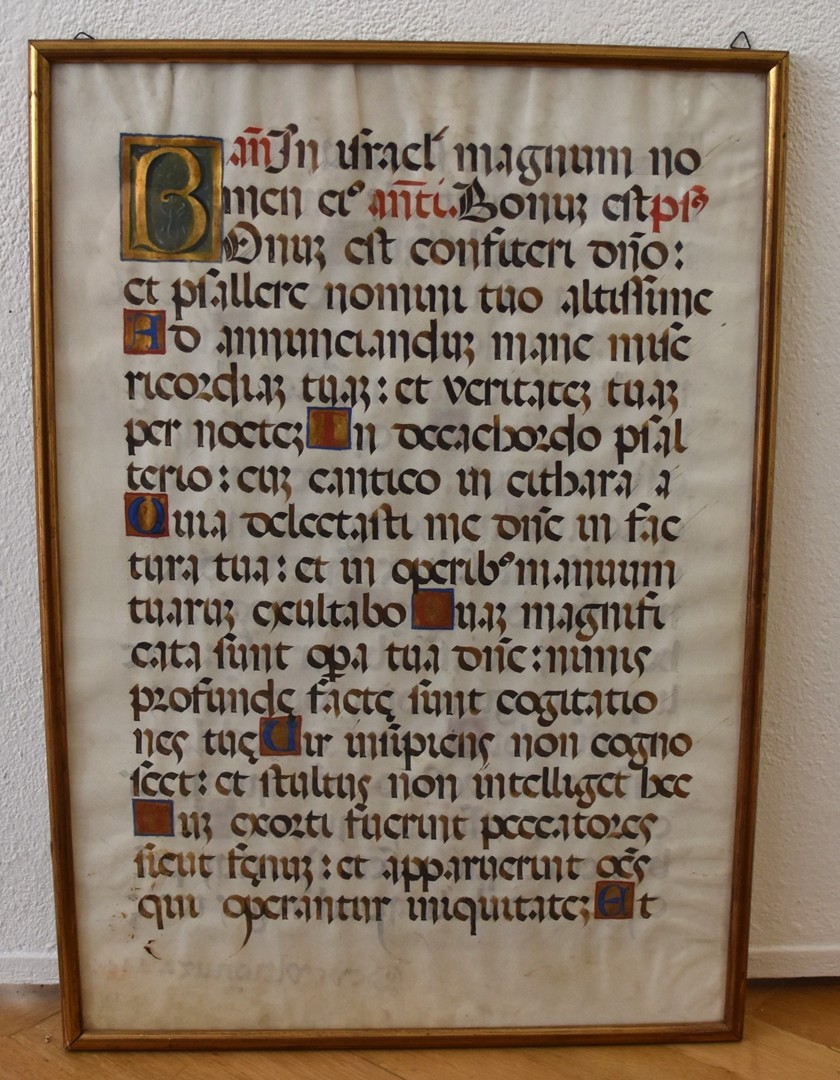 an̄ In israel magnum no
men eiꝰ an̄ti. Bonuȝ est psꝰ
BOnuȝ est confiteri dn̄o:
et psallere nomini tuo altissime
Ad annuncianduȝ mane mise
ricordiaȝ tuaȝ: et veritateȝ tuaȝ
per nocteȝ In decachordo psal
terio: cuȝ cantico in cithara
Quia delectasti me dn̄e in fac
tura tua: et in operibꝰ manuum
tuaruȝ exultabo Quaȝ magnifi
cata sunt oꝑa tua dn̄e: nimis
profundę factę sunt cogitatio
nes tuę Uir insipiens non cogno
scet: et stultus non intelliget hec
Cuȝ exorti fuerint peccatores
sicut fęnuȝ: et apparuerint oēs
qui operantur iniquitateȝ Et